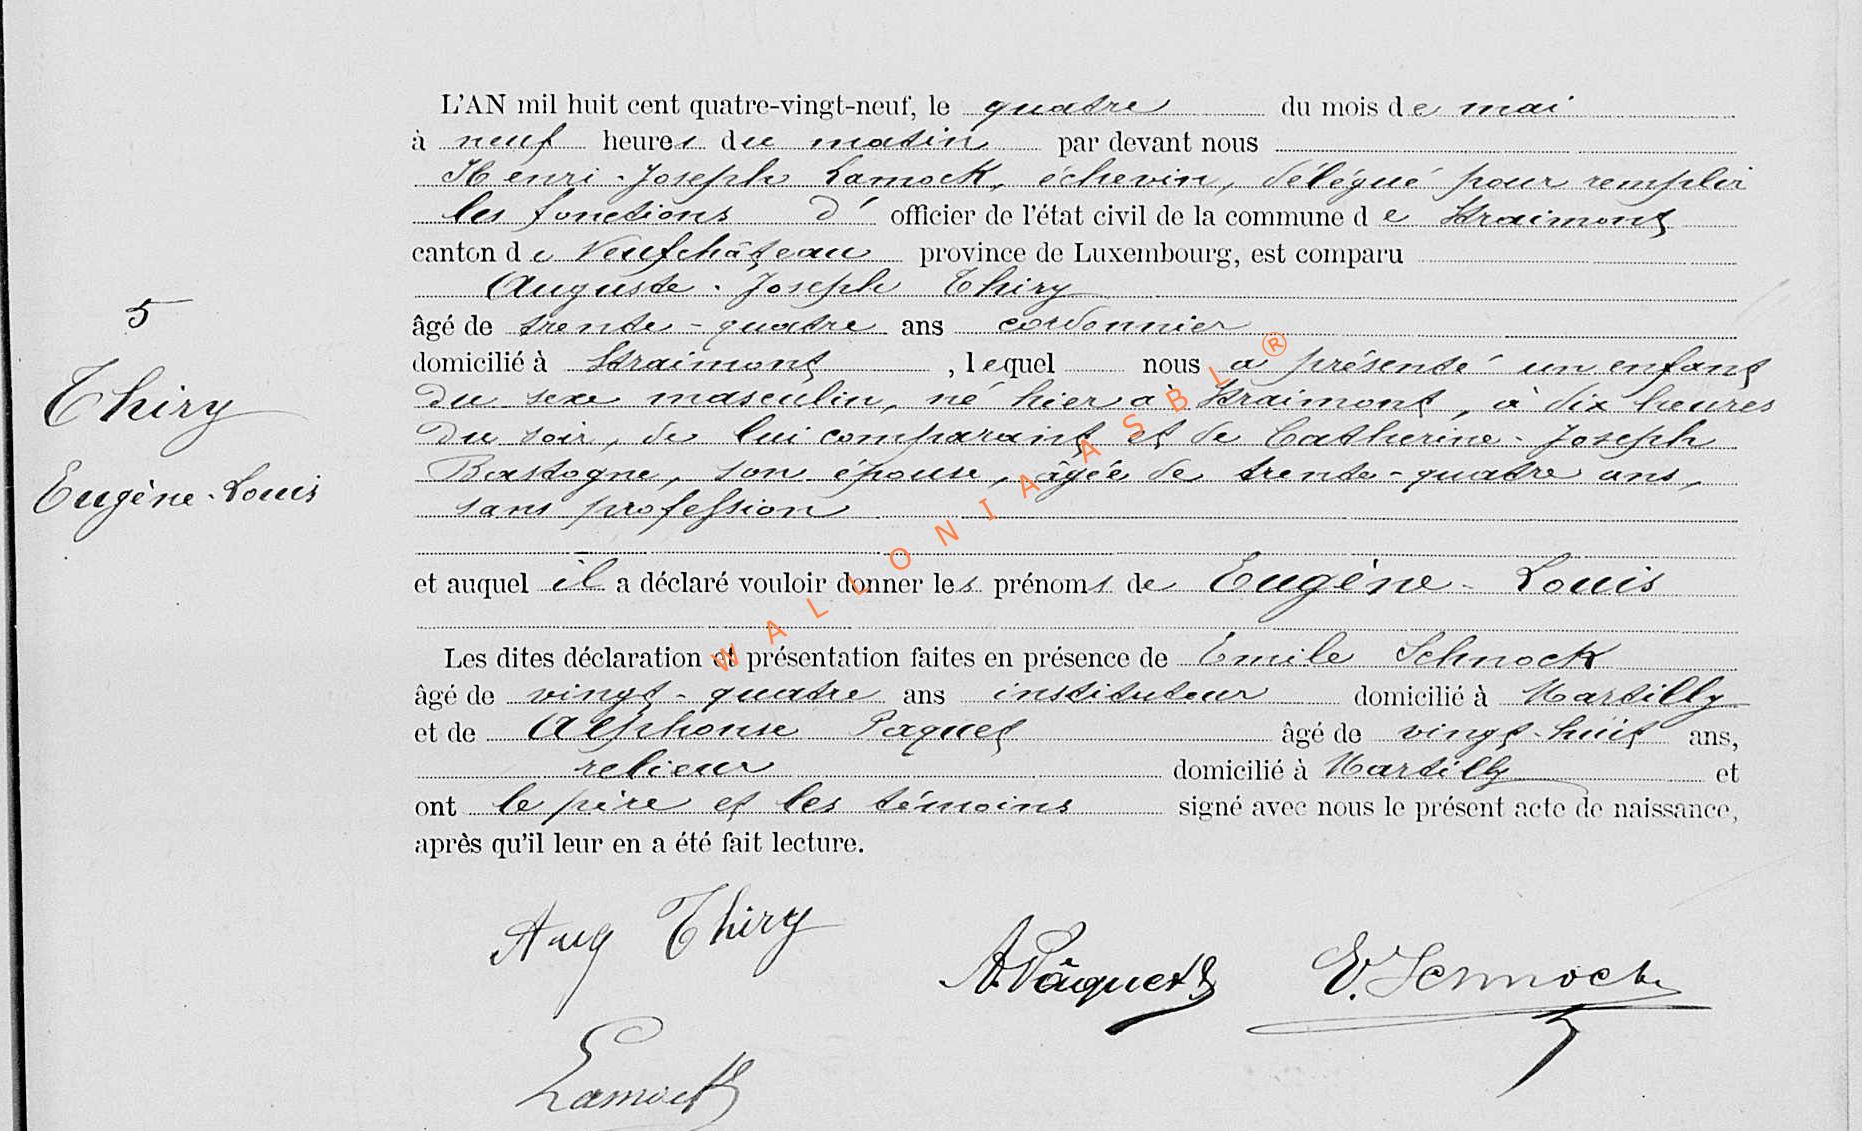 L'AN mil huit cent quatre-vingt-neuf, le quatre du mois de mai
à neuf heures du matin par devant nous
Henri-Joseph Lamock, échevin, délégué pour remplir
les fonctions d' officier de l'état civil de la commune de Straimont
canton de Neufchâteau province de Luxembourg, est comparu
Auguste-Joseph Thiry
âgé de trente-quatre ans cordonnier
domicilié à Straimont, lequel nous a présenté un enfant
du sexe masculin, né hier à Straimont, à dix heures
du soir, de lui comparant et de Catherine-Joseph
Bastogne, son épouse, âgée de trente-quatre ans,
sans profession
et auquel il a déclaré vouloir donner les prénoms de Eugène-Louis
Les dites déclaration et présentation faites en présence de Emile Schnock
âgé de vingt-quatre ans instituteur domicilié à Martilly
et de Alphonse Paquet âgé de vingt-huit ans,
relieur domicilié à Martilly et
ont le père et les témoins signé avec nous le présent acte de naissance,
après qu'il leur en a été fait lecture.
5
Thiry
Eugène-Louis
Aug Thiry
A. Pâquet
E. Schnock
Lamock
WALLONIA ASBL ®